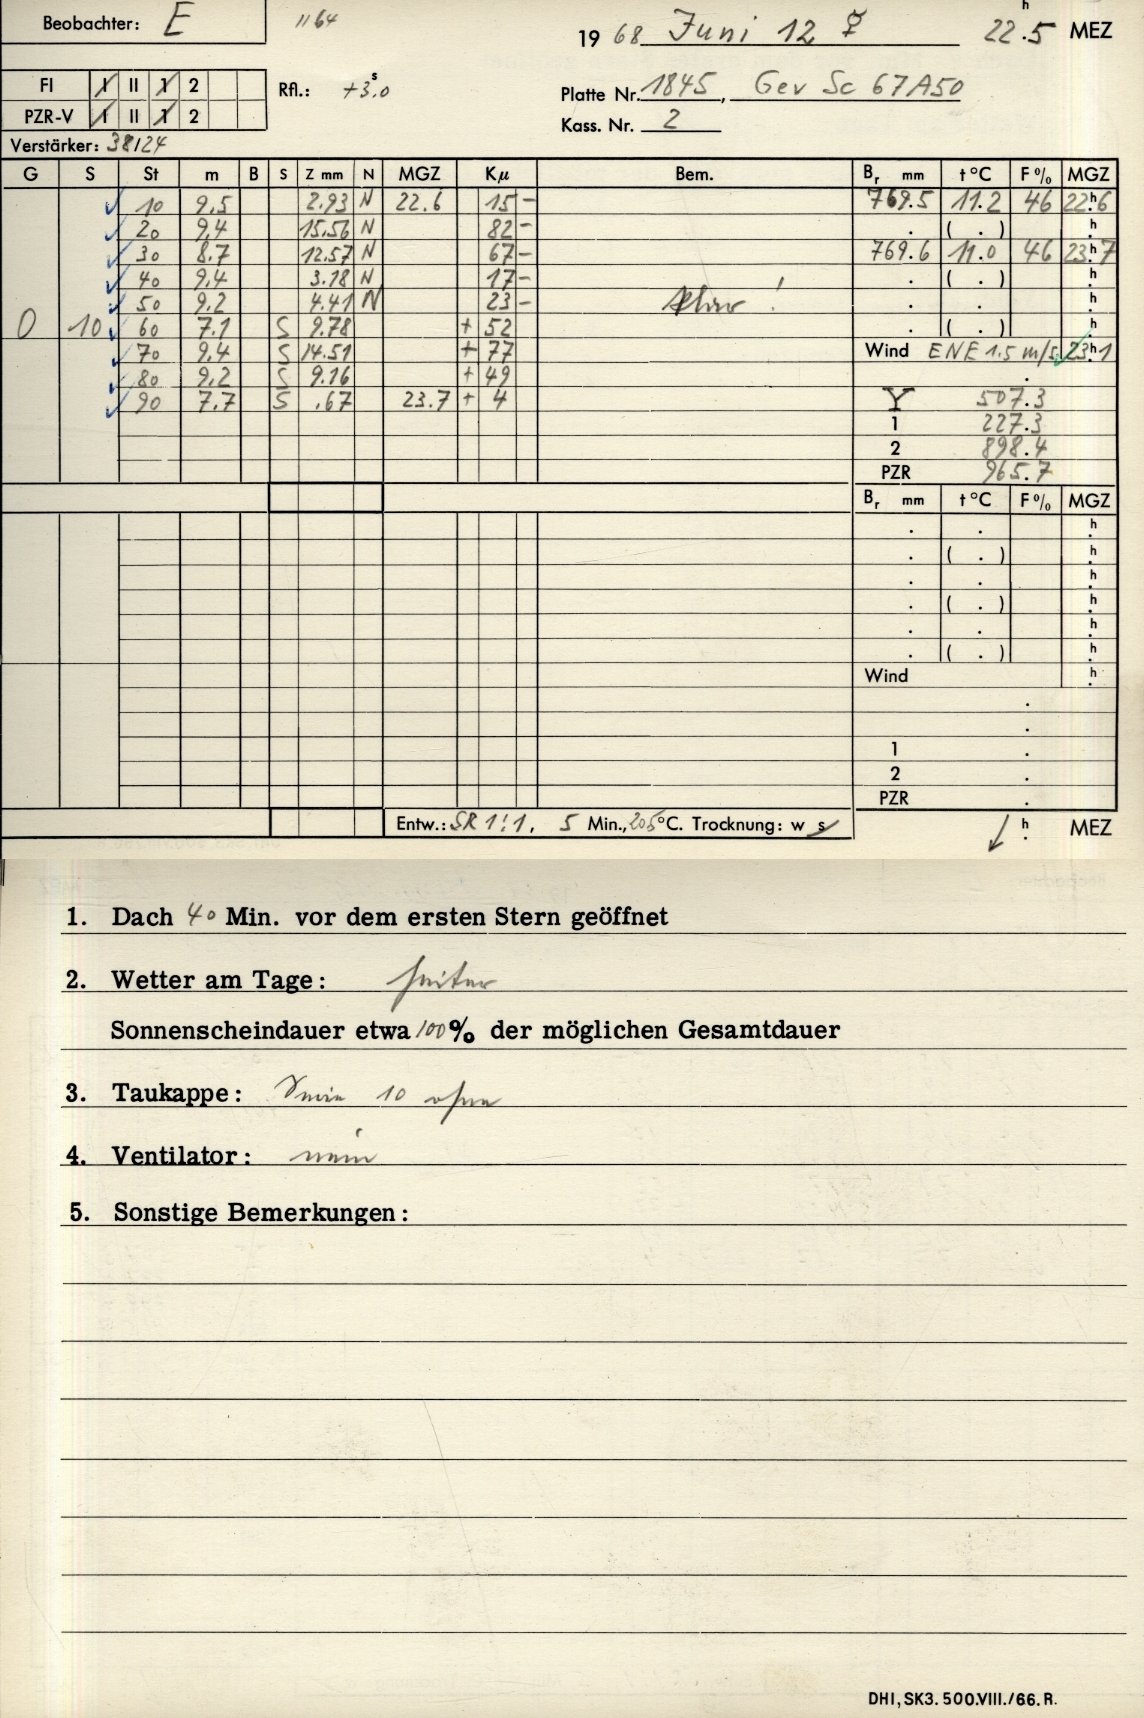 Beobachter: E 1164 19 68 Juni 12 ☿ 22.5 h MEZ
FI I II 1 2 Rfl.: +3.0 s Platte Nr. 1845, Gev Sc 67A50
PZR-V I II 1 2 Kass. Nr. 2
Verstärker: 38124
G S St m B S Z mm N MGZ Kμ Bem. Br mm t °C F % MGZ
10 9.5 2.93 N 22.6 15 – 769.5 11.2 46 22.h6
20 9.4 15.56 N 82 – . ( . ) h
30 8.7 12.57 N 67 – 769.6 11.0 46 23.h7
40 9.4 3.18 N 17 – . ( . ) h
50 9.2 4.41 N 23 – klar ! . . h
0 10 60 7.1 S 9.78 + 52 . ( . ) h
70 9.4 S 14.51 + 77 Wind ENE 1.5 m/s 23.h1
80 9.2 S 9.16 + 49 .
90 7.7 S .67 23.7 + 4 Y 507.3
1 227.3
2 898.4
PZR 965.7
Br mm t °C F % MGZ
. . h
. ( . ) h
. . h
. ( . ) h
. . h
. ( . ) h
Wind h
.
.
1 .
2 .
PZR .
Entw.: SR 1:1, 5 Min., 20.5 °C. Trocknung: w s h MEZ
1. Dach 40 Min. vor dem ersten Stern geöffnet
2. Wetter am Tage: heiter
Sonnenscheindauer etwa 100 % der möglichen Gesamtdauer
3. Taukappe: Serie 10 ohne
4. Ventilator: nein
5. Sonstige Bemerkungen:
DHI, SK3. 500.VIII./66. R.